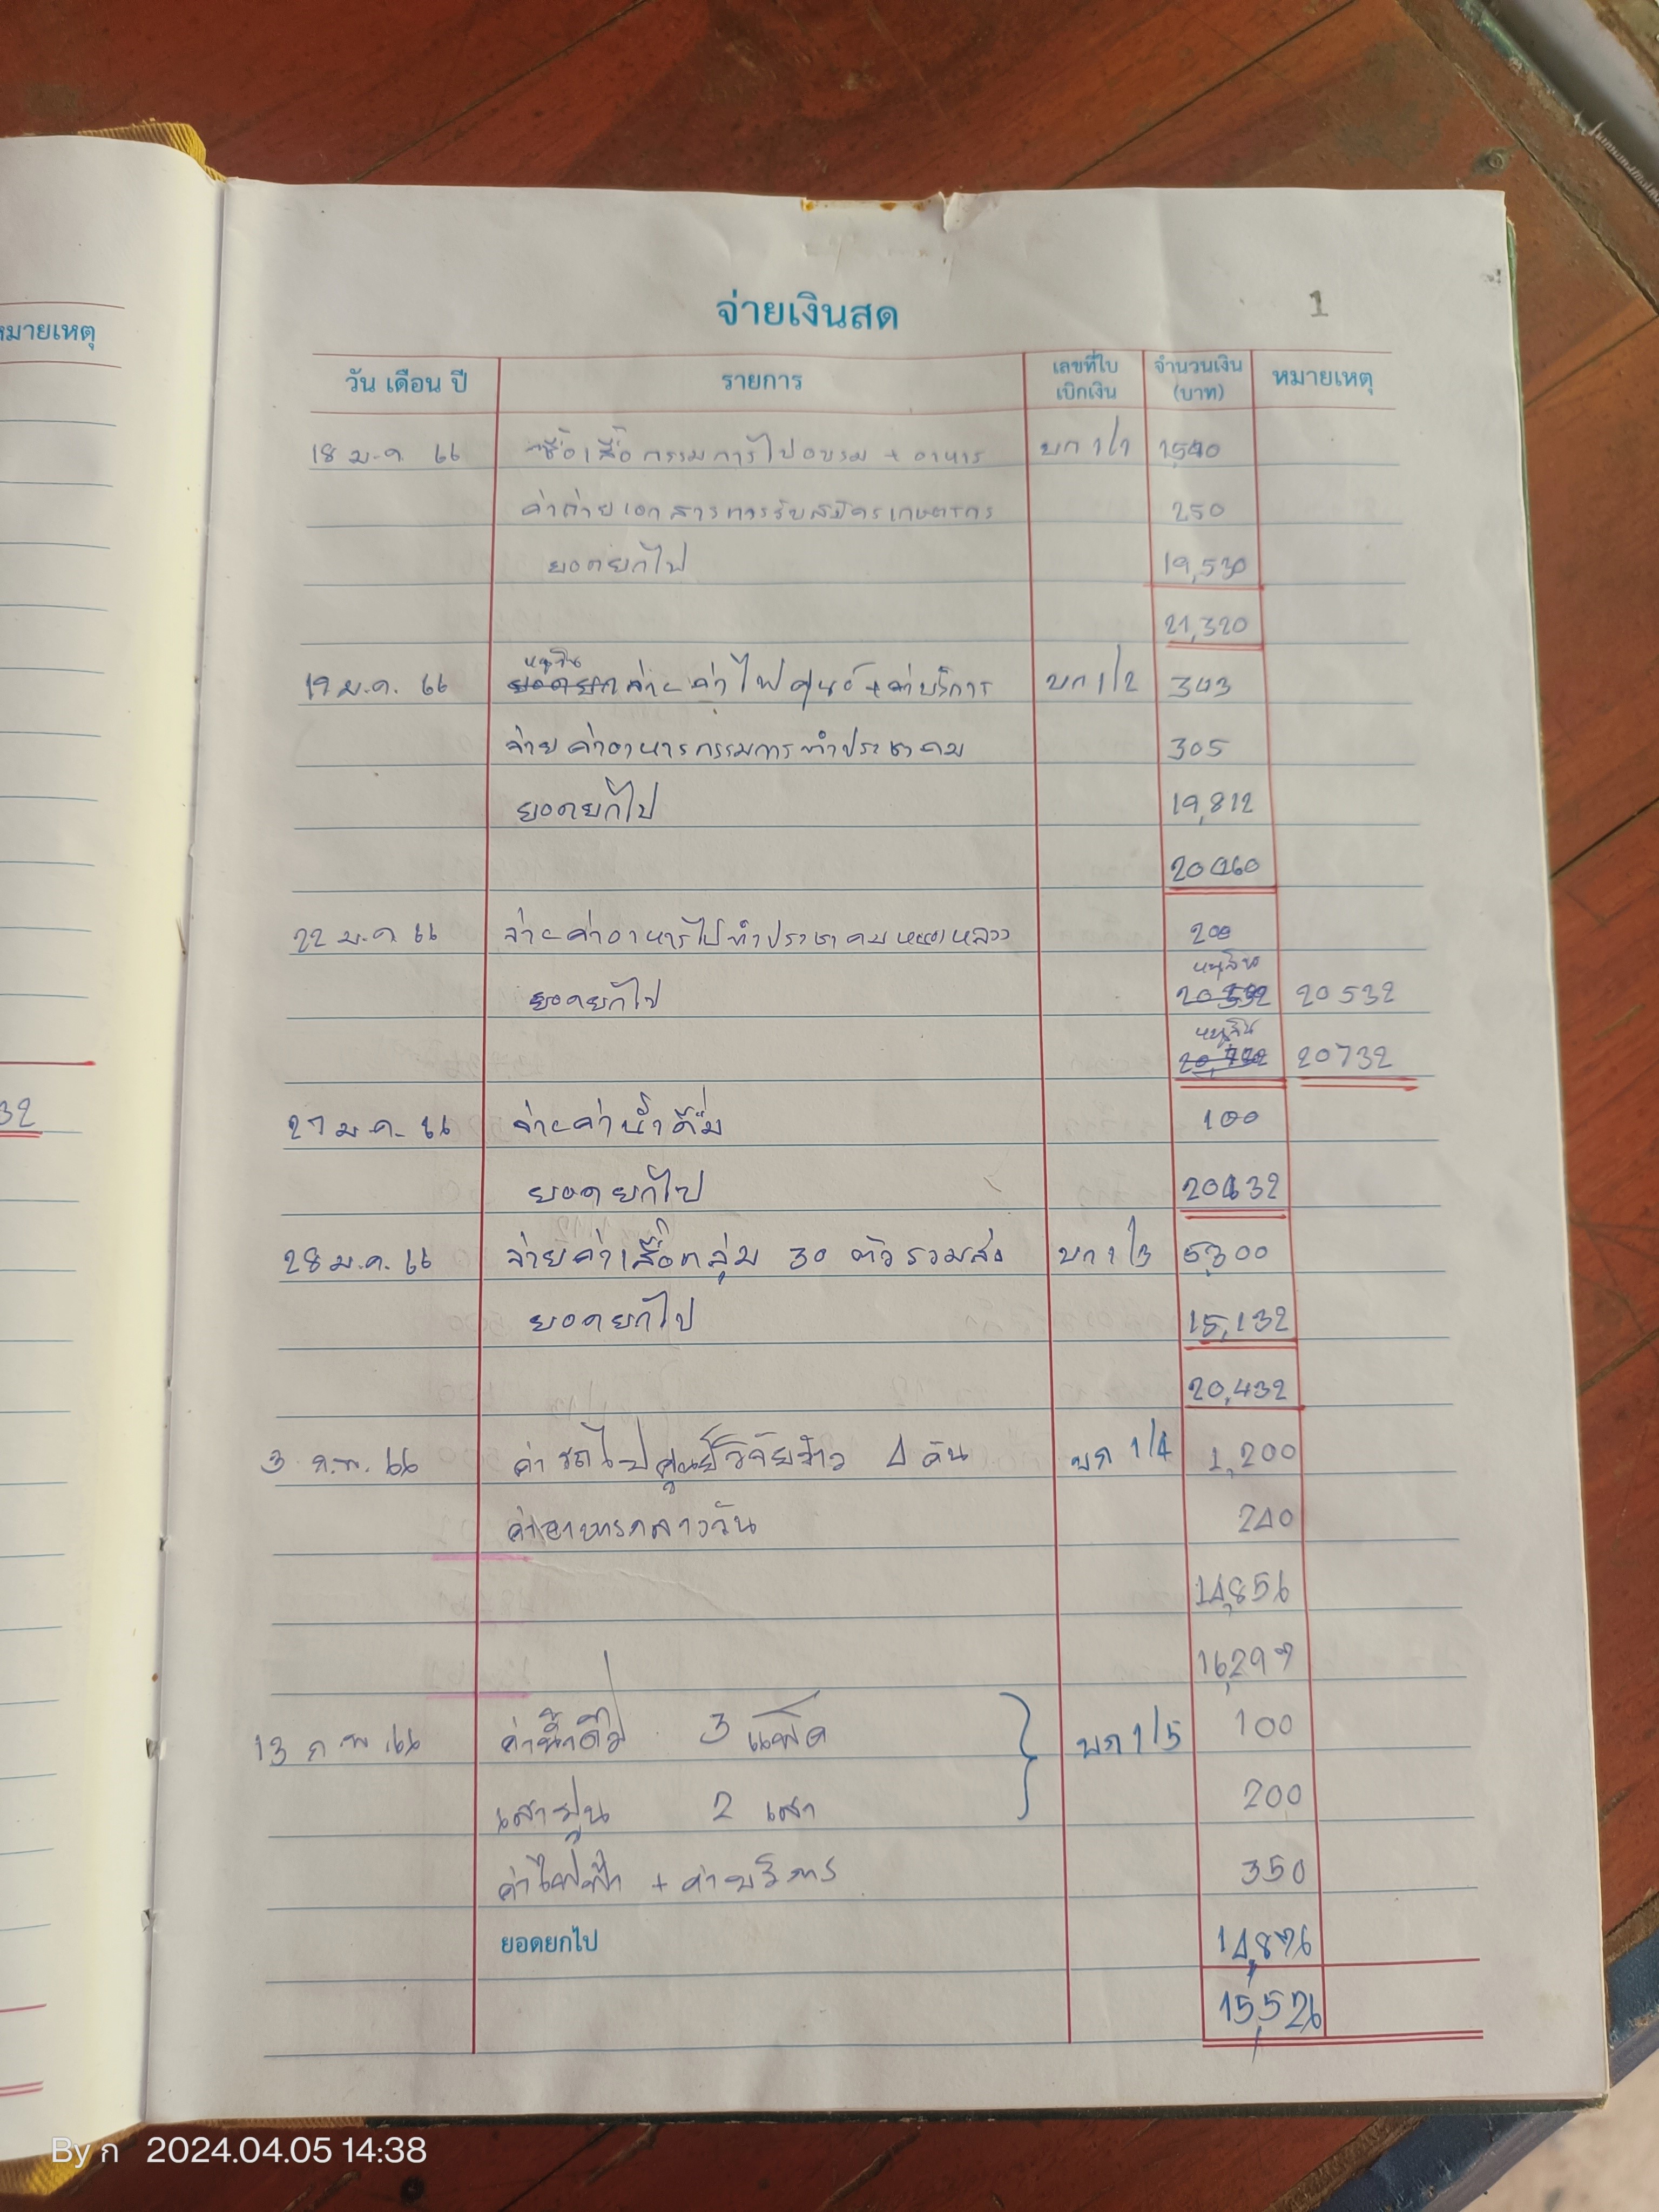 หมายเหตุ
32
1
จ่ายเงินสด
วัน เดือน ปี รายการ เลขที่ใบเบิกเงิน จำนวนเงิน (บาท) หมายเหตุ
18 ม.ค. 66 ซื้อเสื้อกรรมการไปอบรม + อาหาร บก 1/1 1540
ค่าถ่ายเอกสารการรับสมัครเกษตรกร 250
ยอดยกไป 19,530
21,320
19 ม.ค. 66 จ่าย ค่าไฟศูนย์ + ค่าบริการ บก 1/2 343
จ่ายค่าอาหารกรรมการทำประชาคม 305
ยอดยกไป 19,812
20460
22 ม.ค. 66 จ่ายค่าอาหารไปทำประชาคม 200
ยอดยกไป 20532
20732
27 ม.ค. 66 จ่ายค่าน้ำดื่ม 100
ยอดยกไป 20632
28 ม.ค. 66 จ่ายค่าเสื้อกลุ่ม 30 ตัวรวมส่ง บก 1/3 5,300
ยอดยกไป 15,132
20,432
3 ก.พ. 66 ค่ารถไปศูนย์วิจัยข้าว 4 คัน บก 1/4 1,200
ค่าอาหารกลางวัน 240
14,856
16,297
13 ก.พ. 66 ค่าน้ำดื่ม 3 แพ็ค บก 1/5 100
เสาปูน 2 เสา 200
ค่าไฟฟ้า + ค่าบริการ 350
ยอดยกไป 14,876
15,526
By ก 2024.04.05 14:38